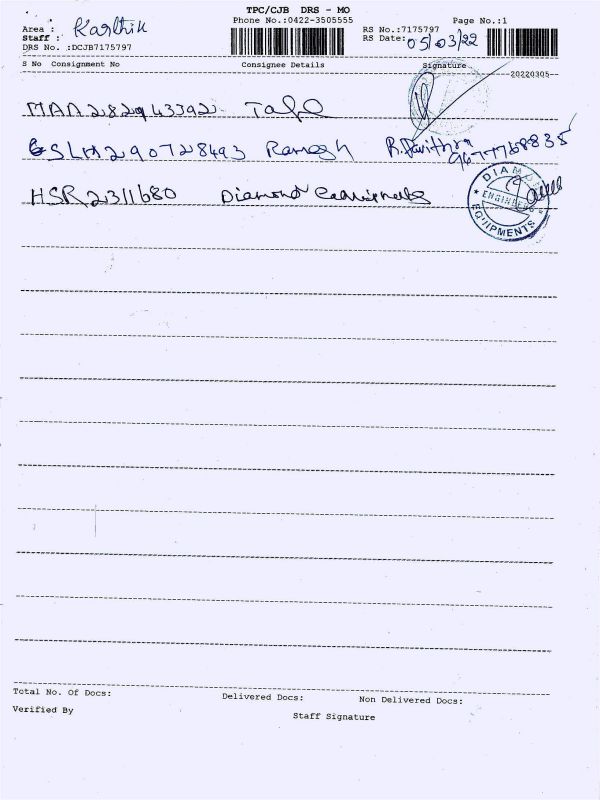 TPC/CJB DRS - MO
Phone No.:0422-3505555
Page No.:1
Area : Karthik
Staff :
DRS No. :DCJB7175797
RS No.:7175797
RS Date: 05/03/22
S No Consignment No Consignee Details Signature
20220305
MAA282943392
SLM290728493 Ramesh R. Pavithra
9677768835
HSR2311680 Diamond Equipments
DIAMO
ENGINEE
EQUIPMENTS
Total No. Of Docs: Delivered Docs: Non Delivered Docs:
Verified By Staff Signature